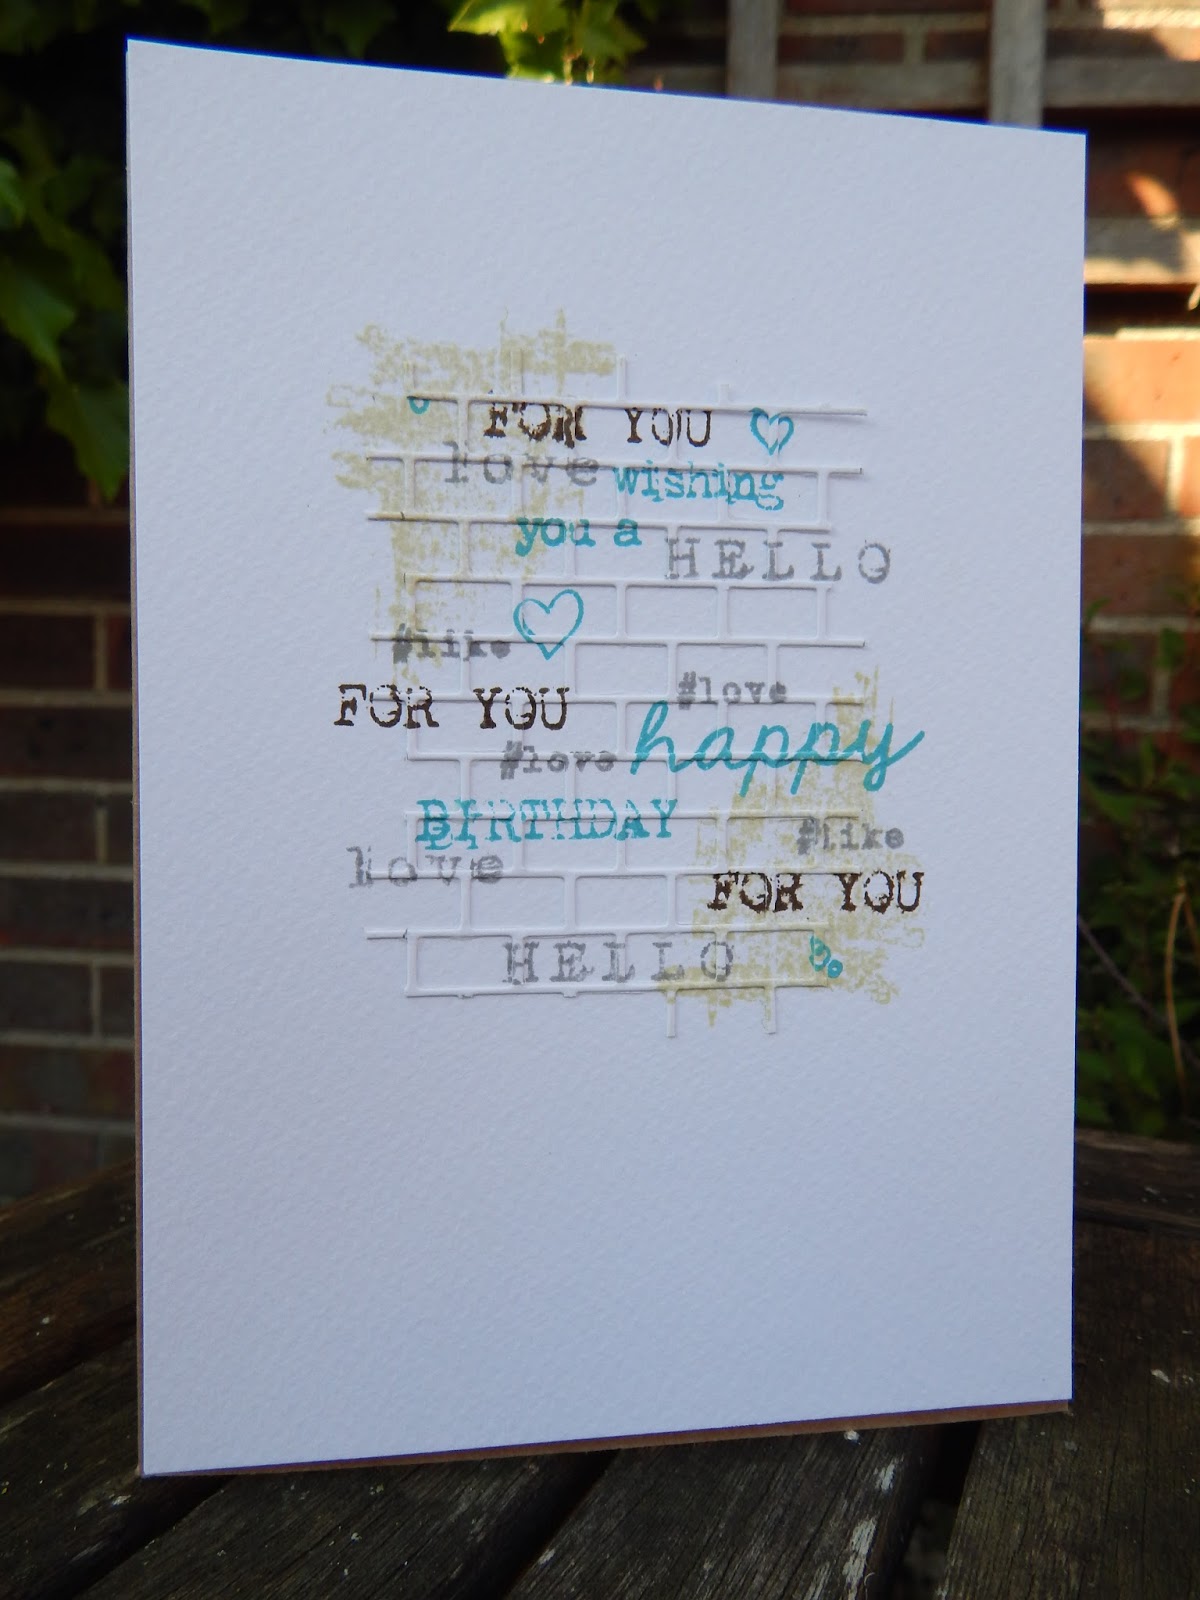 FOR YOU
love wishing
you a HELLO
#like
#love
FOR YOU
happy
#love
BIRTHDAY
#like
love
FOR YOU
HELLO